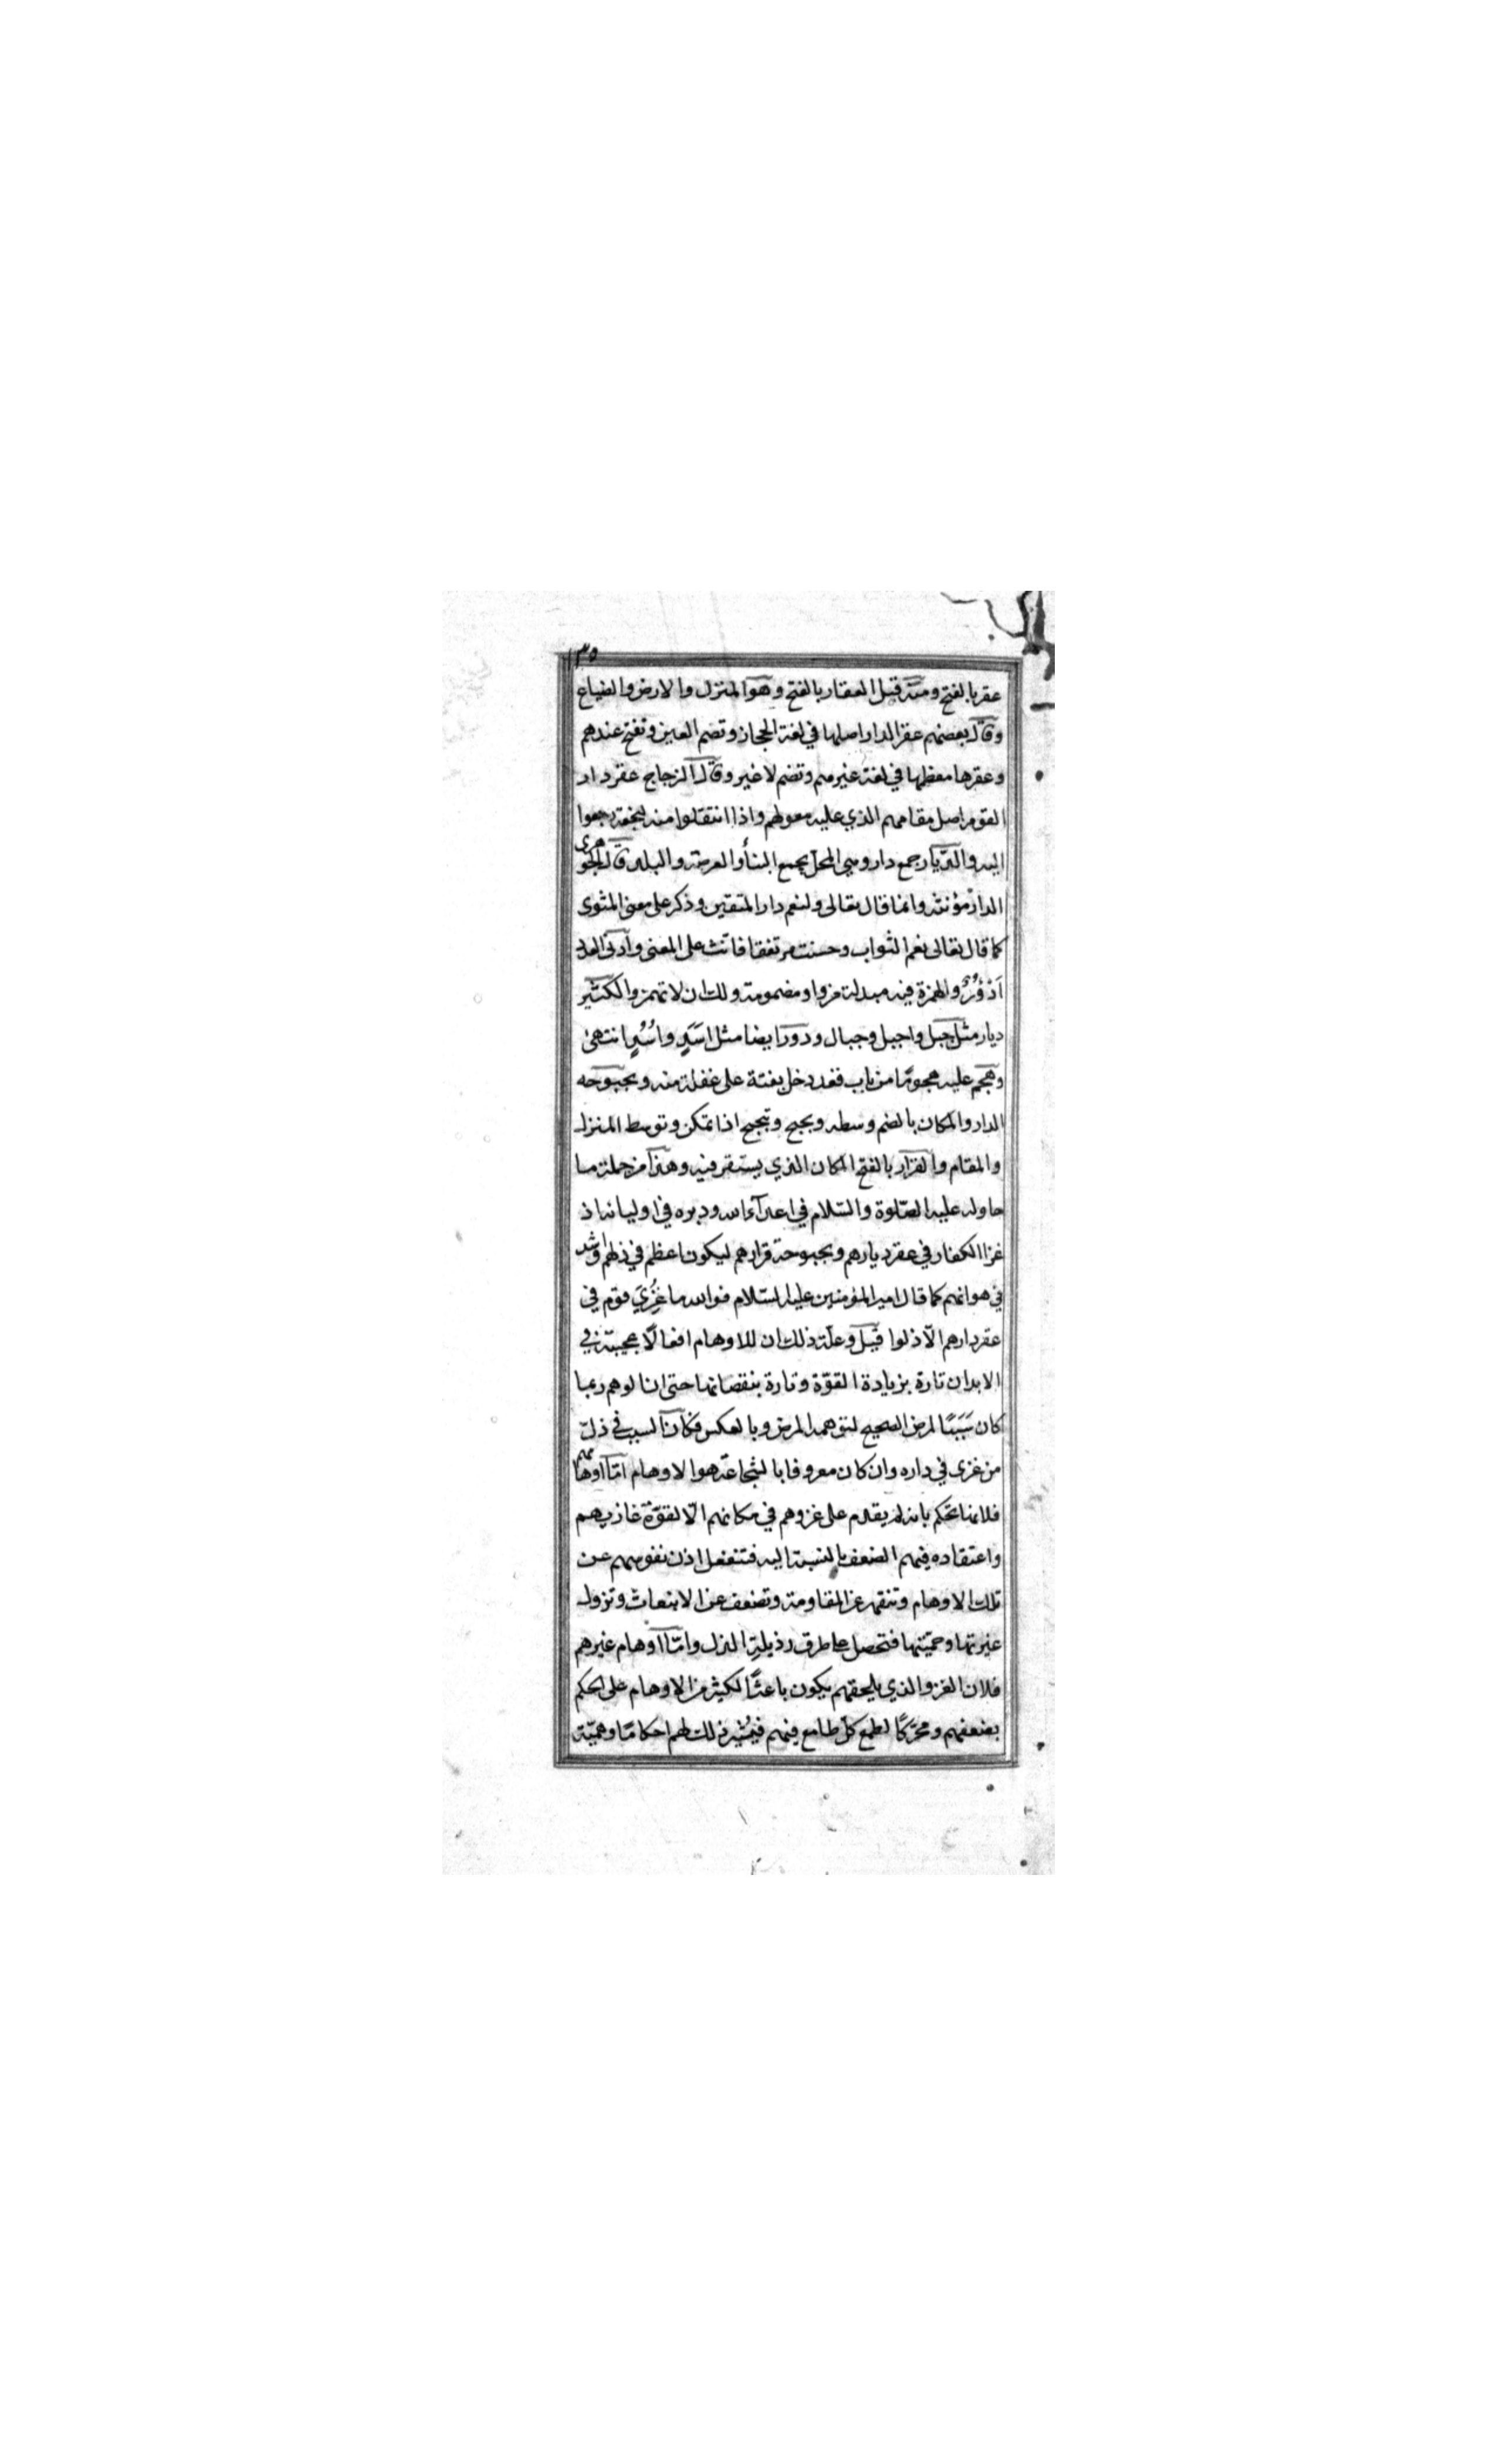 ١٣٥
عقر بالفتح ومنه قيل العقار بالفتح وهو المنزل والارض والضياع
وقال بعضهم عقر الدار اصلها في لغة الحجاز وتضم العين وتفتح عندهم
وعقرها معظمها في لغة غيرهم وتضم لا غير وقال الزجاج عقر دار
القوم اصل مقامهم الذي عليه معولهم واذا انتقلوا منه لنجعة رجعوا
اليه والديار جمع دار وهي المحل يجمع البناء والعرصة والبلد قال الجوهري
الدار مؤنثة وانما قال تعالى ولنعم دار المتقين وذكر على معنى المثوى
كما قال تعالى نعم الثواب وحسنت مرتفقا فانث على المعنى وادنى العدد
اَدْؤُرٌ والهمزة فيه مبدلة من واو مضمومة ولك ان لا تهمز والكثير
ديار مثل جبل واجبل وجبال ودور ايضا مثل اسَدٍ واُسُدٍ انتهى
وهجم عليه هجومًا من باب قعد دخل بغتة على غفلة منه وبحبوحه
الدار والمكان بالضم وسطه وبحبح وتبحبح اذا تمكن وتوسط المنزل
والمقام والقرار بالفتح المكان الذي يستقر فيه وهذا من جملة ما
حاوله عليه الصّلوة والسّلام في اعدآء الله ودبره في اوليائه اذ
غزا الكفار في عقر ديارهم وبحبوحة قرارهم ليكون اعظم في ذلهم واشد
في هوانهم كما قال امير المؤمنين عليه السّلام فوالله ما غُزِيَ قوم في
عقر دارهم الّا ذلوا قيل وعلة ذلك ان للاوهام افعالًا عجيبة في
الابدان تارة بزيادة القوّة وتارة بنقصانها حتى ان الوهم ربما
كان سَبَبًا لمرض الصحيح لتوهمه المرض وبالعكس فكان السبب في ذلّ
من غزى في داره وان كان معروفا بالشجاعة هو الاوهام امّا اوهامهم
فلانها تحكم بانه لم يقدم على غزوهم في مكانهم الّا لقوّة غازيهم
واعتقاده فيهم الضعف بالنسبة اليه فتنفعل اذن نفوسهم عن
تلك الاوهام وتنقهر عن المقاومة وتضعف عن الانبعاث وتزول
غيرتها وحميّتها فتحصل على طرق رذيلة الذل وامّا اوهام غيرهم
فلان الغزو الذي يلحقهم يكون باعثًا لكثير من الاوهام على الحكم
بضعفهم ومحرّكًا لطمع كل طامع فيهم فيُثير ذلك لهم احكامًا وهميّة